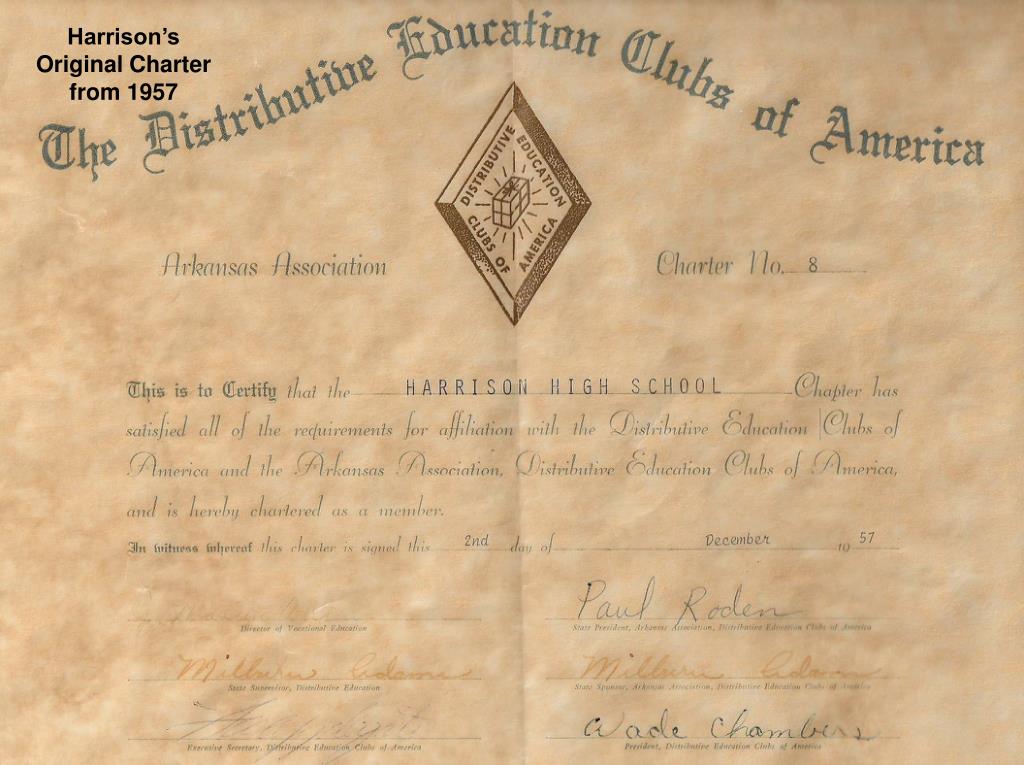 Harrison's
Original Charter
from 1957
The Distributive Education Clubs of America
DISTRIBUTIVE EDUCATION
CLUBS OF AMERICA
Arkansas Association
Charter No. 8
This is to Certify that the HARRISON HIGH SCHOOL Chapter has
satisfied all of the requirements for affiliation with the Distributive Education Clubs of
America and the Arkansas Association, Distributive Education Clubs of America,
and is hereby chartered as a member.
In witness whereof this charter is signed this 2nd day of December 19 57
Director of Vocational Education
Paul Roden
State President, Arkansas Association, Distributive Education Clubs of America
Milburn Adams
State Supervisor, Distributive Education
Milburn Adams
State Sponsor, Arkansas Association, Distributive Education Clubs of America
Executive Secretary, Distributive Education Clubs of America
Wade Chambers
President, Distributive Education Clubs of America